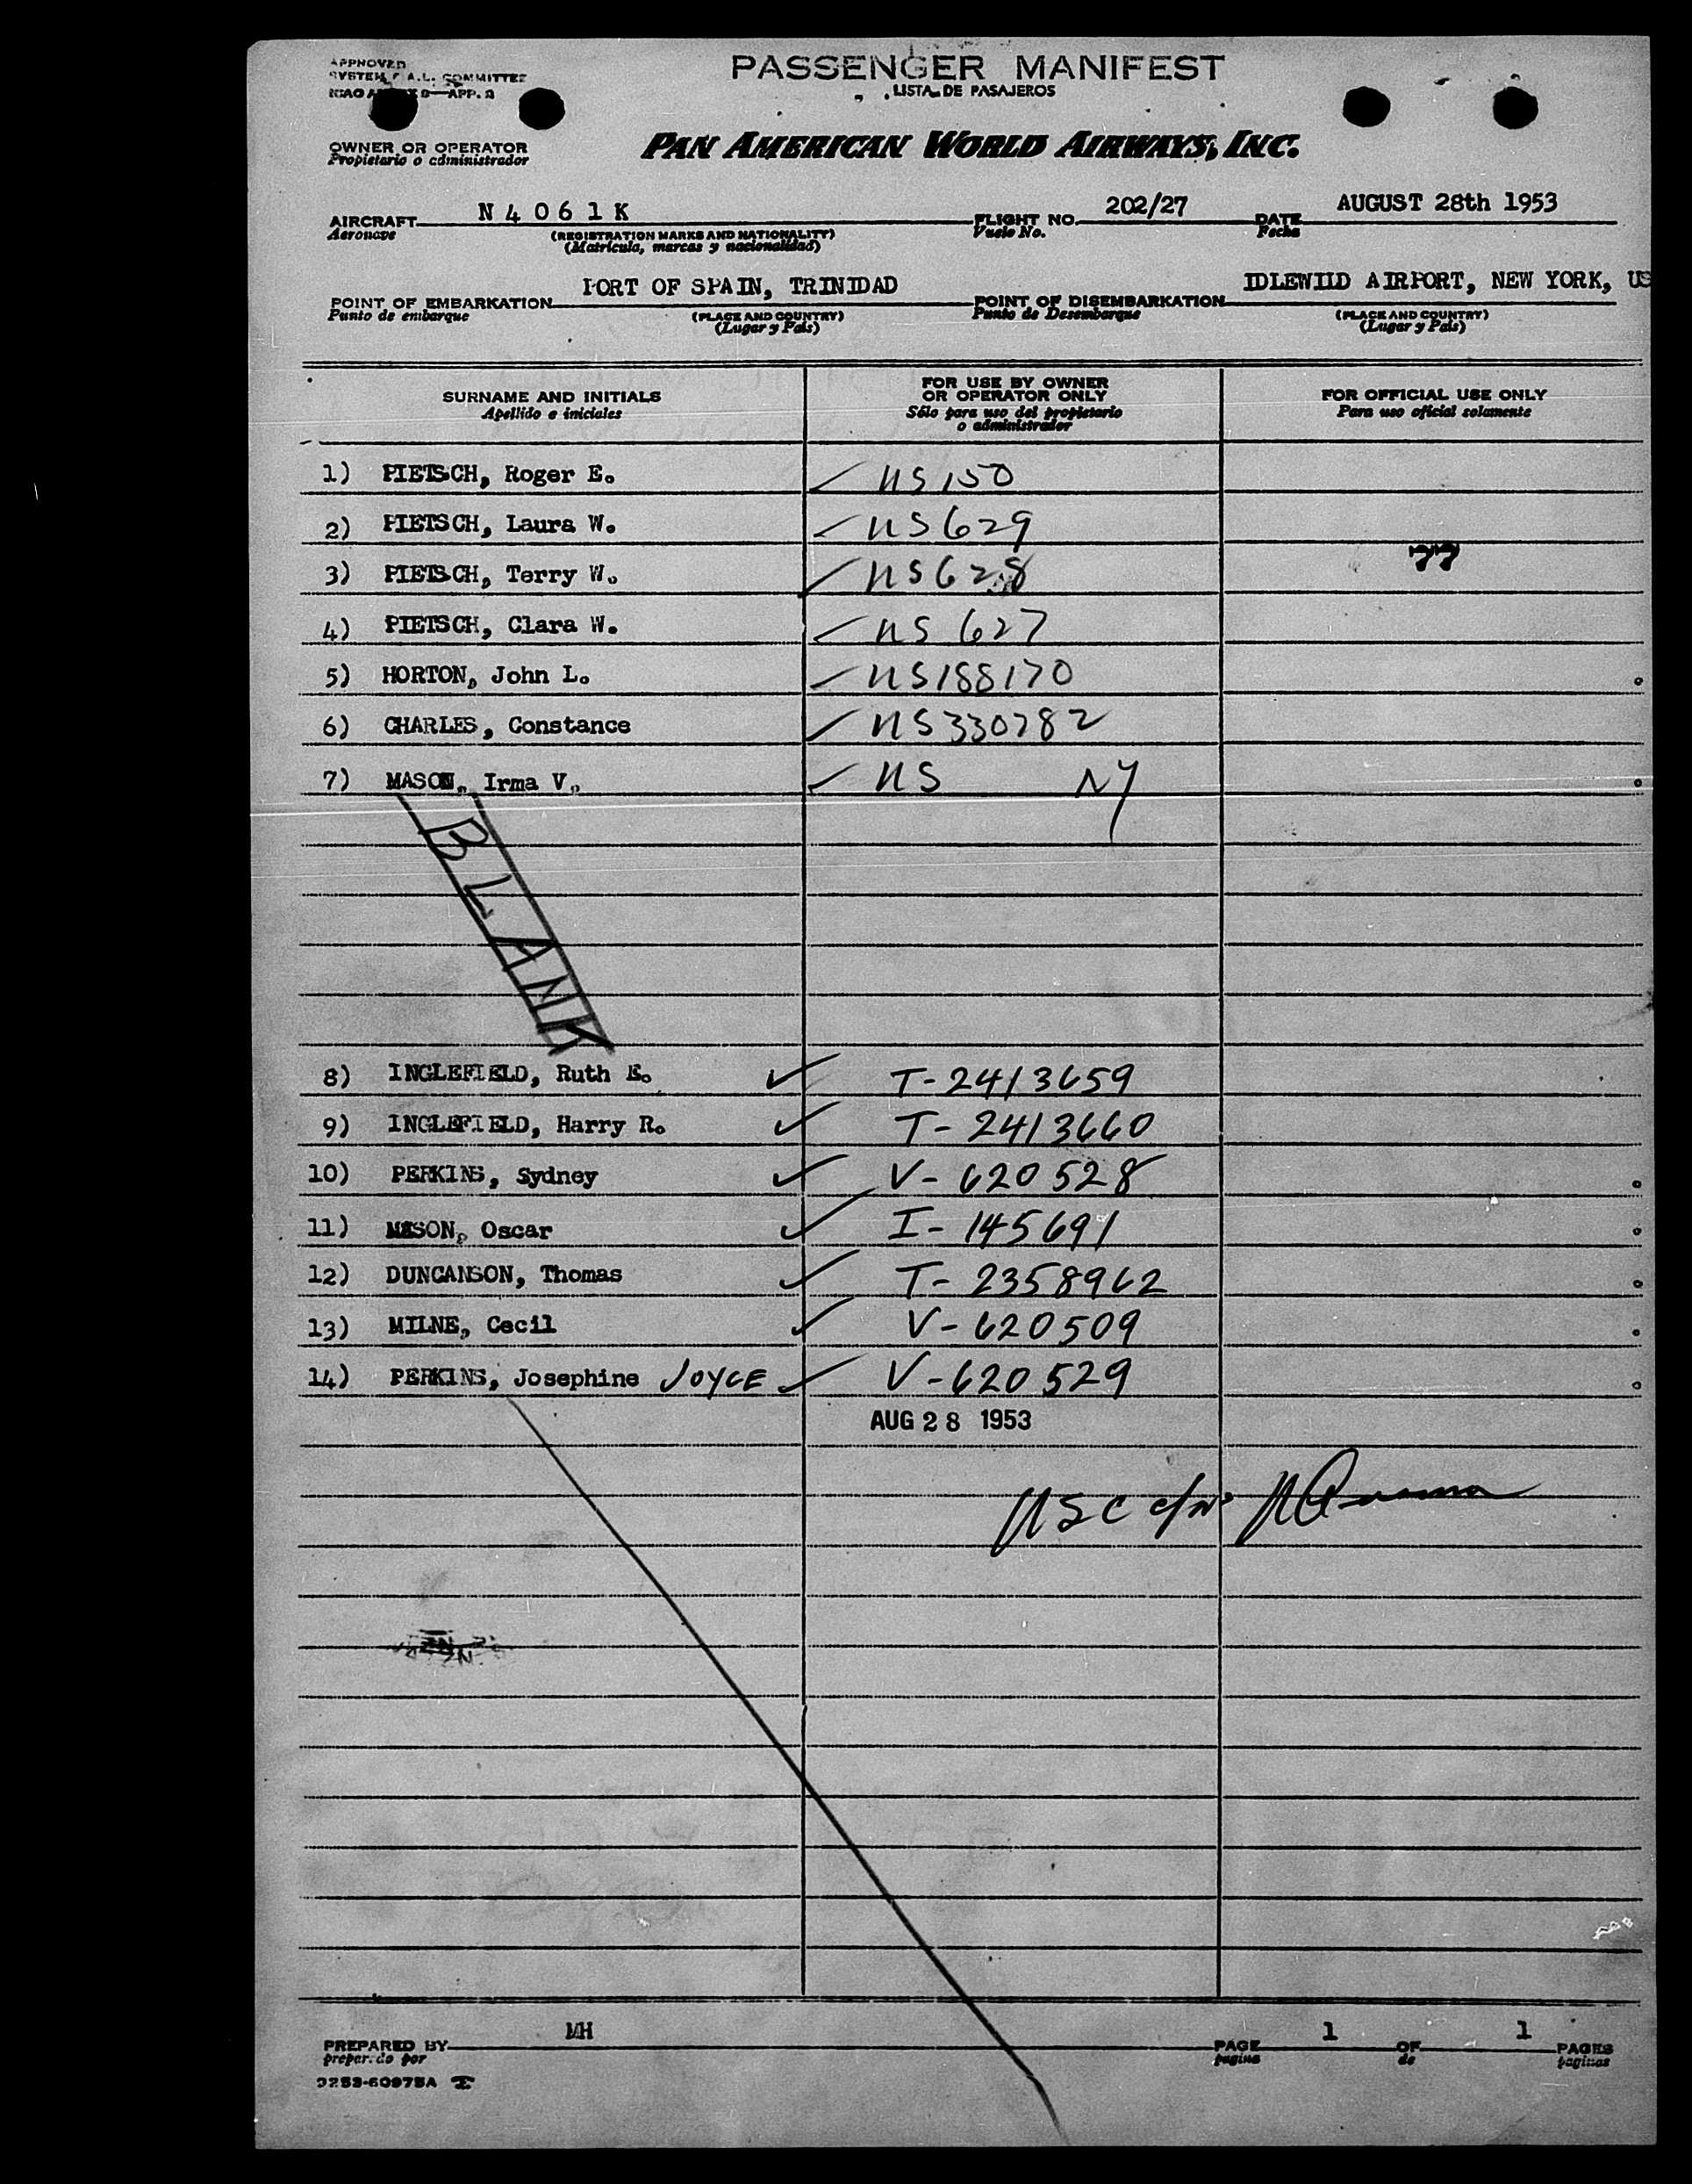 APPROVED
PASSENGER MANIFEST
LISTA DE PASAJEROS
OWNER OR OPERATOR
Propietario o administrador
PAN AMERICAN WORLD AIRWAYS, INC.
AIRCRAFT N 4 0 6 1 K FLIGHT NO. 202/27 DATE AUGUST 28th 1953
Aeronave (REGISTRATION MARKS AND NATIONALITY) Vuelo No. Fecha
(Matrícula, marcas y nacionalidad)
POINT OF EMBARKATION PORT OF SPAIN, TRINIDAD POINT OF DISEMBARKATION IDLEWILD AIRPORT, NEW YORK, US
Punto de embarque (PLACE AND COUNTRY) Punto de Desembarque (PLACE AND COUNTRY)
(Lugar y País) (Lugar y País)
SURNAME AND INITIALS FOR USE BY OWNER OR OPERATOR ONLY FOR OFFICIAL USE ONLY
Apellido e iniciales Sólo para uso del propietario o administrador Para uso oficial solamente
1) PIETSCH, Roger E. US 150
2) PIETSCH, Laura W. US 629
77
3) PIETSCH, Terry W. US 628
4) PIETSCH, Clara W. US 627
5) HORTON, John L. US 188170
6) CHARLES, Constance US 330782
7) MASON, Irma V. US NY
BLANK
8) INGLEFIELD, Ruth E. T-2413659
9) INGLEFIELD, Harry R. T-2413660
10) PERKINS, Sydney V-620528
11) MASON, Oscar I-145691
12) DUNCANSON, Thomas T-2358962
13) MILNE, Cecil V-620509
14) PERKINS, Josephine JOYCE V-620529
AUG 28 1953
USC
PREPARED BY MH PAGE 1 OF 1 PAGES
preparado por pagina de paginas